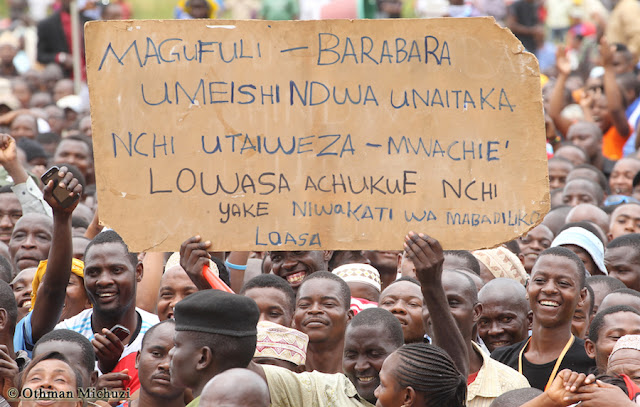 MAGUFULI – BARABARA
UMEISHINDWA UNAITAKA
NCHI UTAIWEZA – MWACHIE'
LOWASA ACHUKUE NCHI
YAKE NIWAKATI WA MABADILIKO
LOASA
©Othman Michuzi